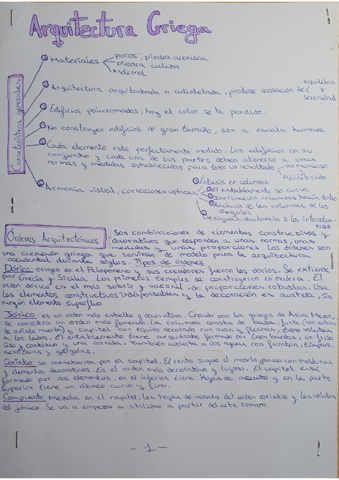 Arquitectura Griega
Características generales
Materiales
poros: piedra arenisca
piedra caliza
mármol
Arquitectura arquitrabada o adintelada, produce sensación de
equilibrio
y
serenidad
Edificios policromados; hoy el color se ha perdido.
No construyen edificios de gran tamaño, son a escala humana
Cada elemento está perfectamente medido. Los edificios en su
conjunto y cada una de sus partes deben atenerse a unas
normas y medidas establecidas para dar un resultado armonioso
equilibrado
Armonía visual, correcciones ópticas
Éntasis en columna
El entablamento se curva
Inclinación columnas hacia dentro
de las columnas de los
ángulos
desigual distancia de los intercolum
nios
Órdenes Arquitectónicos
Son combinaciones de elementos constructivos y
decorativos que responden a unas normas, unas
medidas y unas proporciones. Los órdenes son
una creación griega que servirán de modelo para la arquitectura
occidental durante siglos. Tipos de órdenes
Dórico: origen en el Peloponeso y sus creadores fueron los dorios. Se extiende
por Grecia y Sicilia. Los primeros templos se construyeron en madera. El
orden dórico es el más sobrio y varonil, de proporciones robustas. Usa
los elementos constructivos indispensables y la decoración es austera, sin
ningún elemento superfluo
Jónico: es un orden más esbelto y decorativo. Creado por los griegos de Asia Menor,
se considera un orden más femenino. La columna consta de basa, fuste (con estrías
de arista muerta) y capitel con equino decorado con ovas y flechas, tiene volutas
a los lados. El entablamento tiene arquitrabe formado por tres bandas, un friso
liso y continuo y una cornisa. También cubierta a dos aguas con frontón, tímpano,
acróteras y gárgolas.
Corintio: se caracteriza por el capitel. El resto sigue el modelo jónico con molduras
y elementos decorativos. Es el orden más decorativo y lujoso. El capitel está
formado por dos elementos, en el inferior tiene hojas de acanto y en la parte
superior tiene un ábaco curvo y fino.
Compuesto: Mezcla en el capitel, las hojas de acanto del orden corintio y las volutas
del jónico. Se va a empezar a utilizar a partir del este campo.
- 1 -